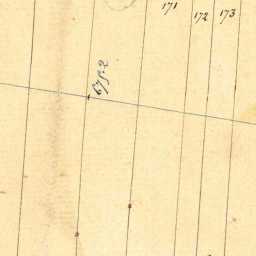 171
172
173
675.2